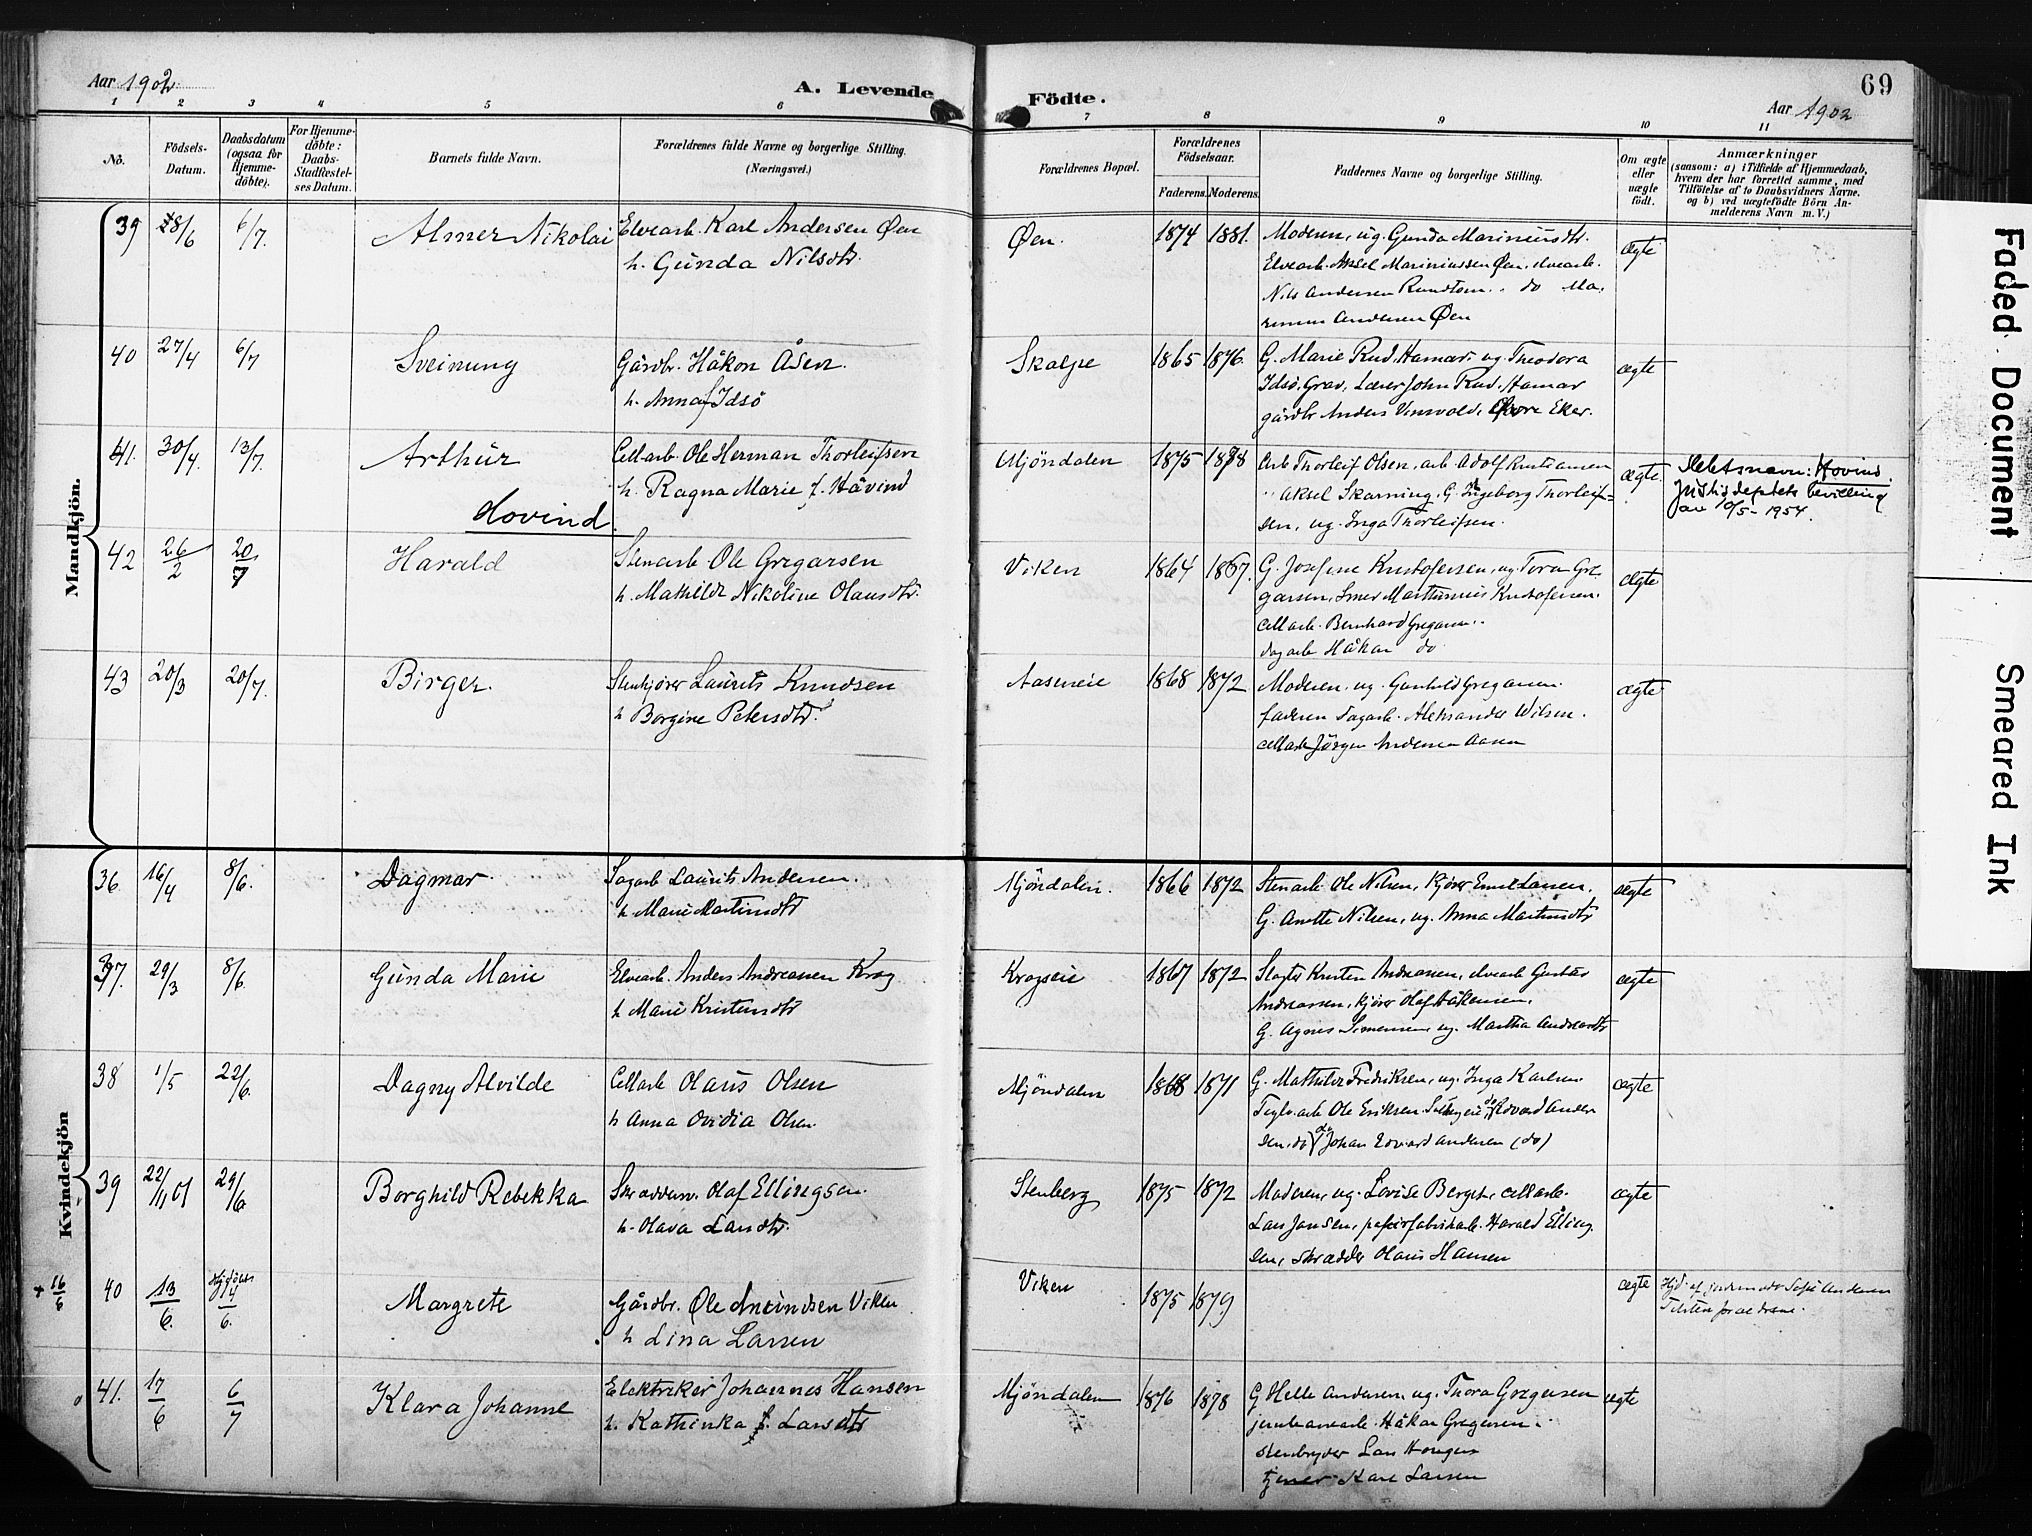 Aar 1902
A. Levende
Födte.
69
Aar 1902
1 2 3 4 5 6 7 8 9 10 11
No.
Födsels-
Datum.
Daabsdatum
(ogsaa for
Hjemme-
döbte).
For Hjemme-
döbte:
Daabs-
Stadfæstel-
ses Datum.
Barnets fulde Navn.
Forældrenes fulde Navne og borgerlige Stilling.
(Næringsvei.)
Forældrenes Bopæl.
Forældrenes
Födselsaar.
Faderens. Moderens.
Faddernes Navne og borgerlige Stilling.
Om ægte
eller
uægte
födt.
Anmærkninger
(saasom: a) i Tilfælde af Hjemmedaab,
hvem der har forrettet samme, med
Tilföielse af to Daabsvidners Navne,
og b) ved uægtefödte Börn An-
melderens Navn m. V.)
Mandkjön.
39 28/6 6/7. Almer Nikolai Elvearb. Karl Andersen Øen
h. Gunda Nilsdtr.
Øen. 1874 1881. Moderen, ug. Gunda Mariniusdtr.
Elvearb. Aksel Mariniussen Øen, elvearb.
Nils Andersen Rundtom.. do Ma-
Andersen Øen
ægte
40 27/4 6/7 Sveinung Gårdbr. Håkon Åsen.
h. Anna f. Idsö
Skalpe 1865 1876. G. Marie Rud, Hamar, ug. Theodora
Idsö, Grav, Lærer John Rud, Hamar
gårdbr Anders Vinsvold, Øvre Eker.
ægte
41. 30/4. 13/7. Arthur Cellarb. Ole Herman Thorleifsen
h. Ragna Marie f. Håvind
Hovind.
Mjöndalen 1875 1878 Arb Thorleif Olsen, arb Adolf Kristiansen
" Aksel Skarning, G. Ingeborg Thorleif-
sen, ug. Inga Thorleifsen.
ægte. Slektsnavn: Hovind.
Justisdeptets bevilling
av 10/5-1954.
42 26/2 20/7 Harald Stenarb Ole Gregarsen
h. Mathilde Nikoline Olausdtr.
Viken 1864 1867. G. Josefine Kristofersen, ug. Tora Gre-
garsen, Smed Marthinius Kristofersen.
cellarb. Bernhard Gregarsen..
dagarb Håkan do
ægte
43 20/3 20/7. Birger. Stenkjörer Laurits Knudsen
h Borgine Petersdtr.
Aaseneie 1868 1872. Moderen, ug. Gunhild Gregarsen.
faderen Sagarb. Aleksander Wilsen.
cellarb Jörgen Andersen Aasen
ægte
Kvindekjön
36 16/4 8/6. Dagmar. Sagarb Laurits Andersen.
h Marie Martinsdtr
Mjöndalen. 1866 1872 Stenarb Ole Nilsen, kjörer Emil Larsen,
G. Anette Nilsen, ug. Anna Martinsdtr
ægte
37. 29/3 8/6. Gunda Marie Elvearb. Anders Andreasen Krog
h Marie Kristensdtr
Krogseie 1867 1872 Slagter Kristen Andreasen, elvearb Gustav
Andreassen, kjörer Olaf Håkensen,
G. Agnes Simensen, ug. Martha Andreasdtr
ægte
38 1/5 22/6. Dagny Alvilde Cellarb Olaus Olsen
h Anna Ovidia Olsen.
Mjöndalen 1868 1871 G. Mathilde Fredriksen, ug. Inga Karlsen
Teglv.arb Ole Eriksen Edvard Ander
sen, do Johan Edvard Andersen (do)
ægte
39 22/11 01 29/6. Borghild Rebekka Skrædderm. Olaf Ellingsen.
h. Olava Larsdtr.
Stenberg 1875 1872 Moderen, ug. Lovise Berget, cellarb.
Lars Jansen, papirfabrikarb. Harald Elling-
sen, skrædder Olaus Hansen
ægte
+ 16/6 40 13/6. Hjdöbt 14/6. Margrete Gårdbr. Ole Amundsen Viken
h Lina Larsen
Viken 1875 1879 ægte Hjd. af jordmoder Sofie Andersen
Tilsten forældrene.
41. 17/6 6/7 Klara Johanne Elektriker Johannes Hansen
h. Kathinka f. Larsdtr
Mjöndalen 1876 1878 G Helle Andersen, ug. Thora Gregersen
jernbanearb. Håkan Gregersen..
stenbryder Lars Hougen
tjener Karl Larsen
ægte
Faded Document
Smeared Ink